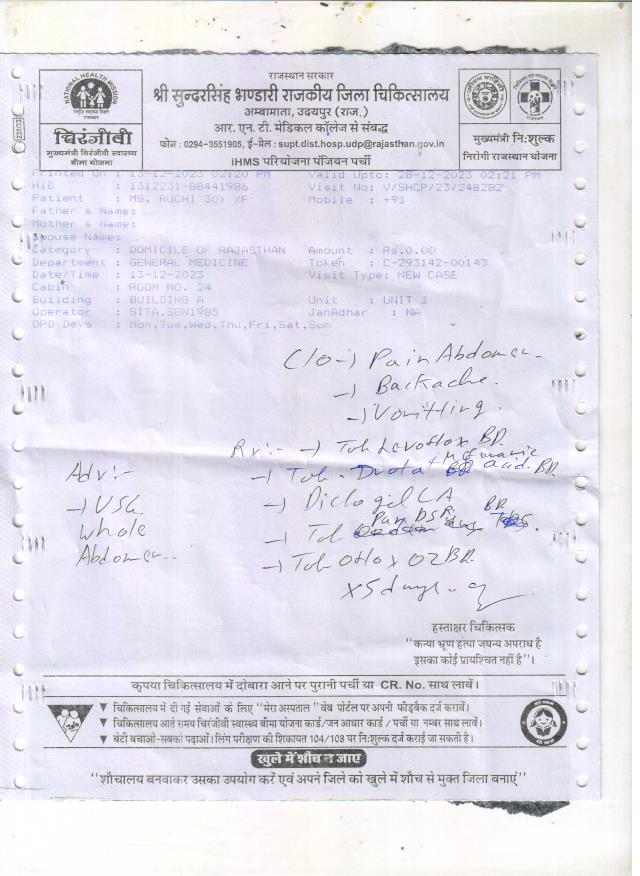 राजस्थान सरकार
श्री सुन्दरसिंह भण्डारी राजकीय जिला चिकित्सालय
अम्बामाता, उदयपुर (राज.)
आर. एन. टी. मेडिकल कॉलेज से संबद्ध
फोन : 0294-3551905, ई-मेल : supt.dist.hosp.udp@rajasthan.gov.in
iHMS परियोजना पंजियन पर्ची
NATIONAL HEALTH MISSION
चिरंजीवी
मुख्यमंत्री चिरंजीवी स्वास्थ्य
बीमा योजना
मुख्यमंत्री निःशुल्क
निरोगी राजस्थान योजना
Printed On : 13-12-2023 02:20 PM Valid Upto: 28-12-2023 02:21 PM
HID : 1312231-88441986 Visit No: V/SHCP/23/248282
Patient : MS. RUCHI JOY /F Mobile : +91
Father s Name:
Mother s Name:
Spouse Name:
Category : DOMICILE OF RAJASTHAN Amount : Rs.0.00
Department : GENERAL MEDICINE Token : C-293142-00143
Date/Time : 13-12-2023 Visit Type: NEW CASE
Cabin : ROOM NO. 24
Building : BUILDING A Unit : UNIT 1
Operator : SITA.SEN1985 JanAdhar : NA
OPD Days : Mon,Tue,Wed,Thu,Fri,Sat,Sun
C/O → Pain Abdomen.
→ Backache.
→ Vomitting.
Rx:- → Tab Levoflox BD.
Adv:- → Tab. Drota + acid. BD.
→ USG. → Diclo gel LA
Whole → Tab Pan DSR BD.
Abdomen.. → Tab Oflox OZ BD.
x5 days.
हस्ताक्षर चिकित्सक
"कन्या भ्रूण हत्या जघन्य अपराध है
इसका कोई प्रायश्चित नहीं है"।
कृपया चिकित्सालय में दोबारा आने पर पुरानी पर्ची या CR. No. साथ लावें।
▼ चिकित्सालय में दी गई सेवाओं के लिए "मेरा अस्पताल" वेब पोर्टल पर अपनी फीडबैक दर्ज करावें।
▼ चिकित्सालय आते समय चिरंजीवी स्वास्थ्य बीमा योजना कार्ड / जन आधार कार्ड / पर्ची या नम्बर साथ लावें।
▼ बेटी बचाओ-सबको पढ़ाओ। लिंग परीक्षण की शिकायत 104/108 पर निःशुल्क दर्ज कराई जा सकती है।
खुले में शौच न जाए
"शौचालय बनवाकर उसका उपयोग करें एवं अपने जिले को खुले में शौच से मुक्त जिला बनाएं"